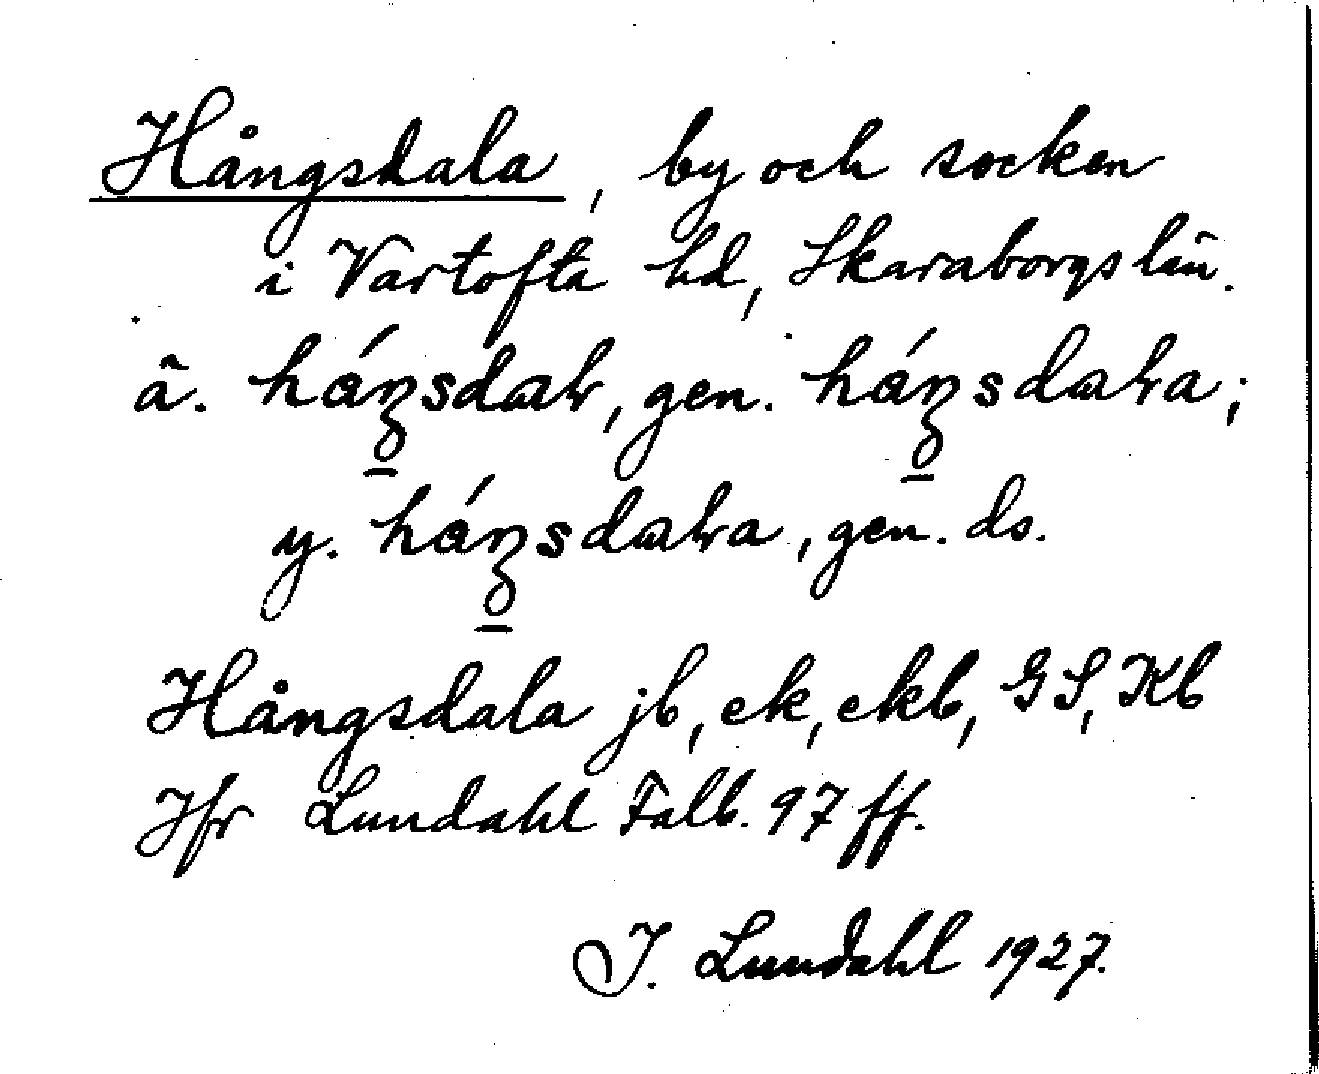 Hångsdala, by och socken
i Vartofta hd, Skaraborgs län.
ä. háŋsdaɽ, gen. háŋsdaɽa;
y. háŋsdaɽa, gen. ds.
Hångsdala jb, ek, ekb, GS, Kb
Jfr Lundahl Falb. 97 ff.
I. Lundahl 1927.